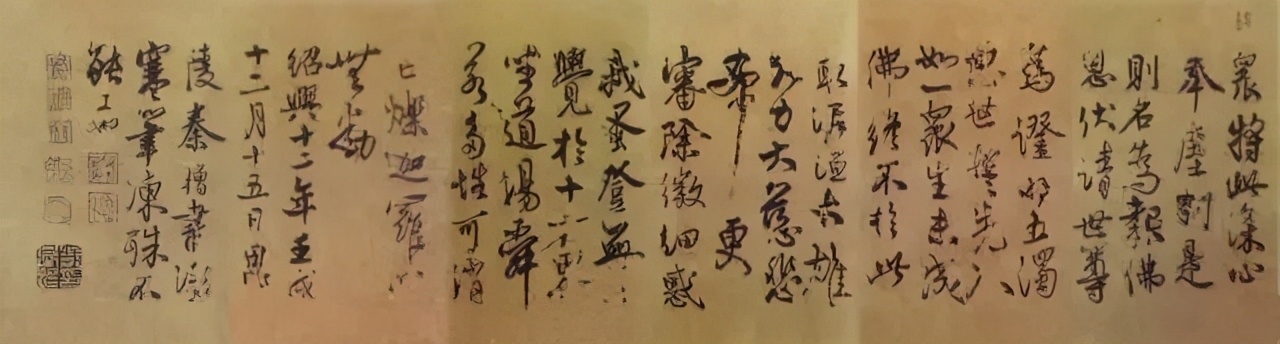 衆將此深心
奉塵剎是
則名為報佛
恩伏請世尊
為證明五濁
惡世誓先入
如一衆生未成
佛終不於此
取泥洹大雄
大力大慈悲
希更
審除微細惑
我蚤登無上
覺於十方界
坐道場舜
若多性可銷
亡爍迦羅心
無動
紹興十二年壬戌
十二月十五日
陵秦檜書
寒筆凍殊不
能工也